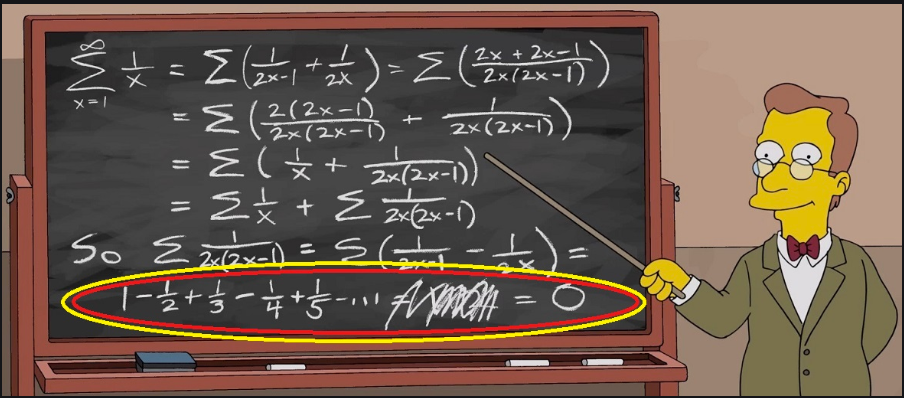 ∞ ∑ x=1 1/x = ∑(1/(2x-1) + 1/2x) = ∑((2x+2x-1)/(2x(2x-1)))
= ∑(2(2x-1)/(2x(2x-1)) + 1/(2x(2x-1)))
= ∑(1/x + 1/(2x(2x-1)))
= ∑ 1/x + ∑ 1/(2x(2x-1))
So ∑ 1/(2x(2x-1)) = ∑(1/(2x-1) - 1/2x) =
1 - 1/2 + 1/3 - 1/4 + 1/5 - ... = 0